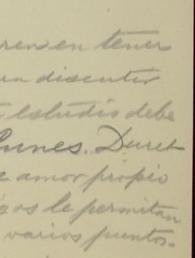 en tener
discutir
estudio debe
Lunes. Duret
amor propio
le permitan
varios puntos.